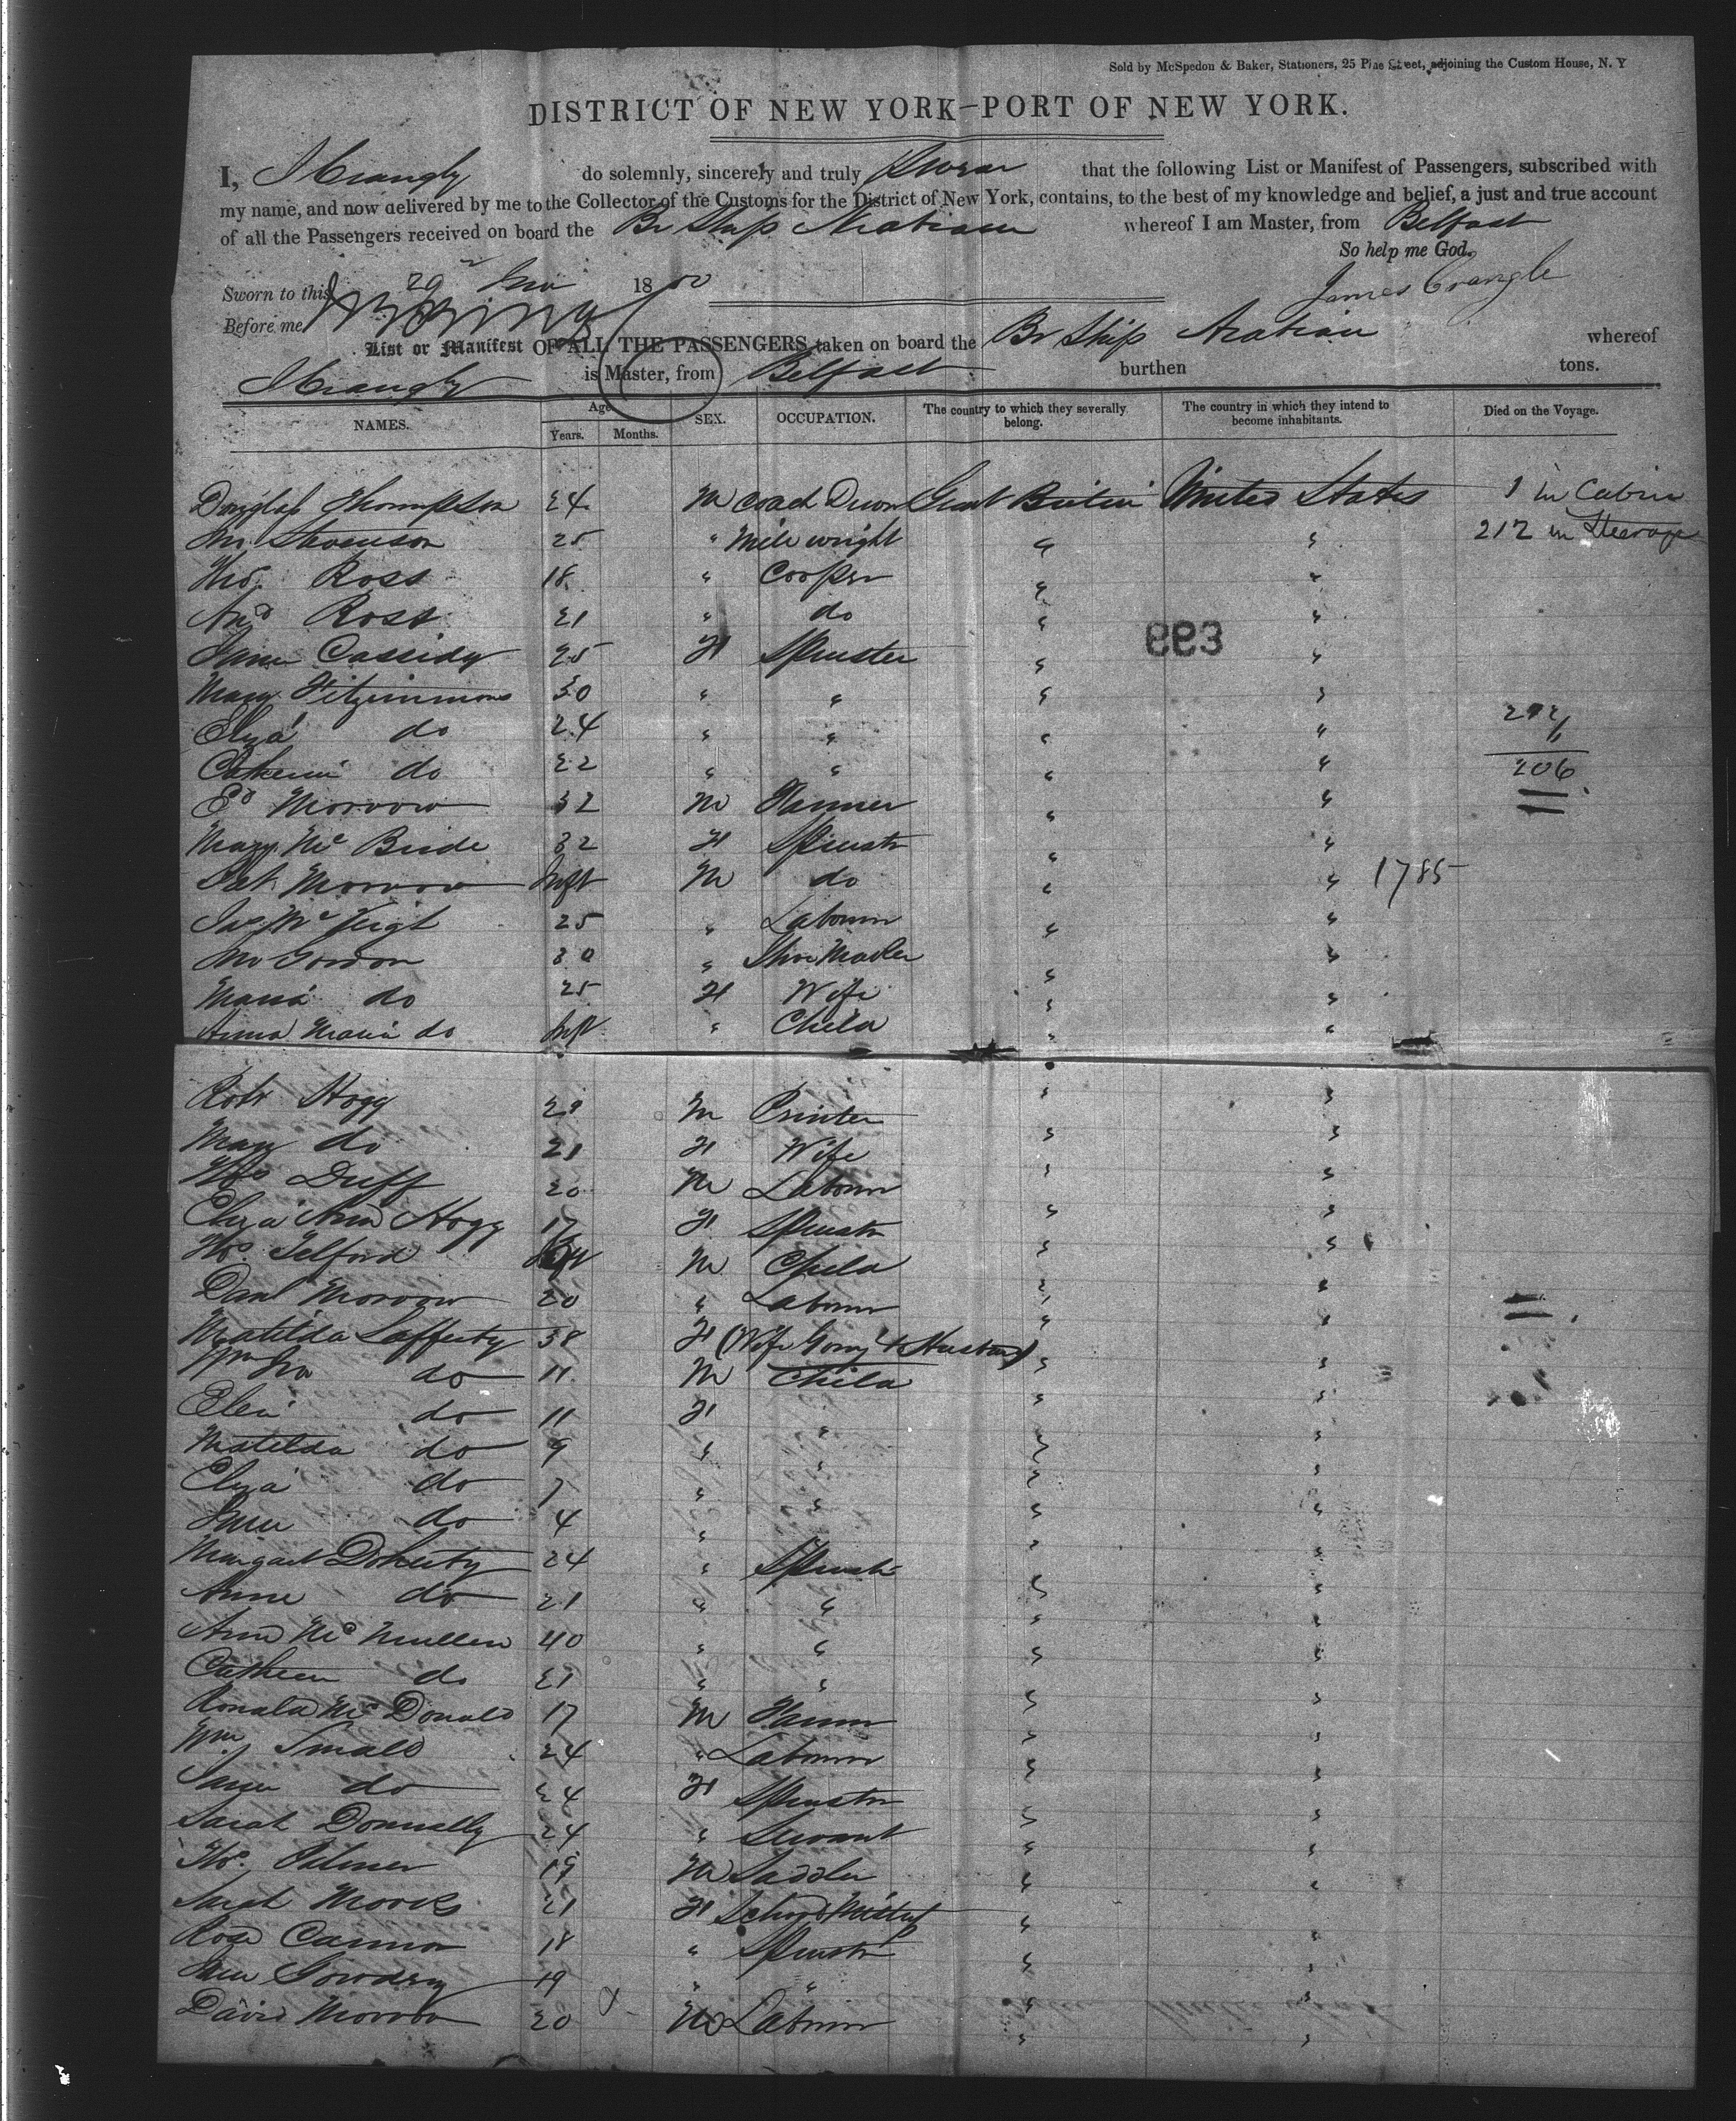 Sold by McSpedon & Baker, Stationers, 25 Pine Street, adjoining the Custom House, N. Y
DISTRICT OF NEW YORK–PORT OF NEW YORK.
I, J Crangle do solemnly, sincerely and truly Swear that the following List or Manifest of Passengers, subscribed with
my name, and now delivered by me to the Collector of the Customs for the District of New York, contains, to the best of my knowledge and belief, a just and true account
of all the Passengers received on board the Br Ship Arabian whereof I am Master, from Belfast
So help me God.
Sworn to this 29 18 50
James Crangle
Before me
List or Manifest OF ALL THE PASSENGERS taken on board the Br Ship Arabian whereof
J Crangle is Master, from Belfast burthen tons.
NAMES. Age Years. Months. SEX. OCCUPATION. The country to which they severally belong. The country in which they intend to become inhabitants. Died on the Voyage.
Douglass Thompson 24 M Coach Great Britain United States 1 in Cabin
Jno. Stevenson 25 " Mill wright " " 212 in Steerage
Thos. Ross 18 " Cooper " "
And Ross 21 " do " "
693
Jane Cassidy 25 F Spinster " "
Mary Fitzsimmons 30 " " " "
Eliza do 24 " " " "
Catherine do 22 " " " " 206
Ed Morrow 32 M Farmer " "
Mary McBride 32 F Spinstr " "
Pat Morrow Inft M do " " 1785
Jas McVeigh 25 " Labourer " "
Jno Gordon 30 " Shoe Maker " "
Maria do 25 F Wife " "
Anna Maria do Inft " Child " "
Robt Hogg 29 M Printer " "
Mary do 21 F Wife " "
Thos Duff 20 M Labourer " "
Eliza Ann Hogg 17 F Spinstr " "
Thos Telford Inft M Child " "
Danl Morrow 20 " Labourer " "
Matilda Lafferty 38 F (Wife Going to Husband) " "
Wm Jno do 11 M Child " "
Ellen do 11 F " " "
Matilda do 9 " " " "
Eliza do 7 " " " "
Jane do 4 " " "
Margaret Doherty 24 " Spinstr " "
Anne do 21 " " " "
Ann McMullen 40 " " " "
Catherine do 21 " " " "
Ronald McDonald 17 M Farmer " "
Wm Small 24 " Labourer " "
Jane do 24 F Spinster " "
Sarah Donnally 24 " Servant " "
Thos. Palmer 19 M Saddler " "
Sarah Moorks 21 F School Mistress " "
Rose Cannon 18 " Spinstr " "
Jane Gowdery 19 " " " "
David Morrow 20 M Labourer " "